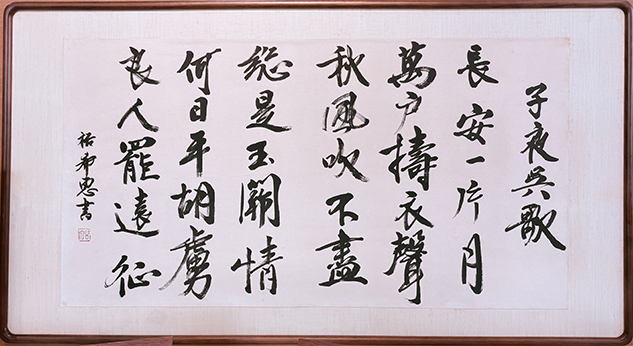 子夜吳歌
長安一片月
萬户擣衣聲
秋風吹不盡
總是玉關情
何日平胡虜
良人罷遠征
希思書